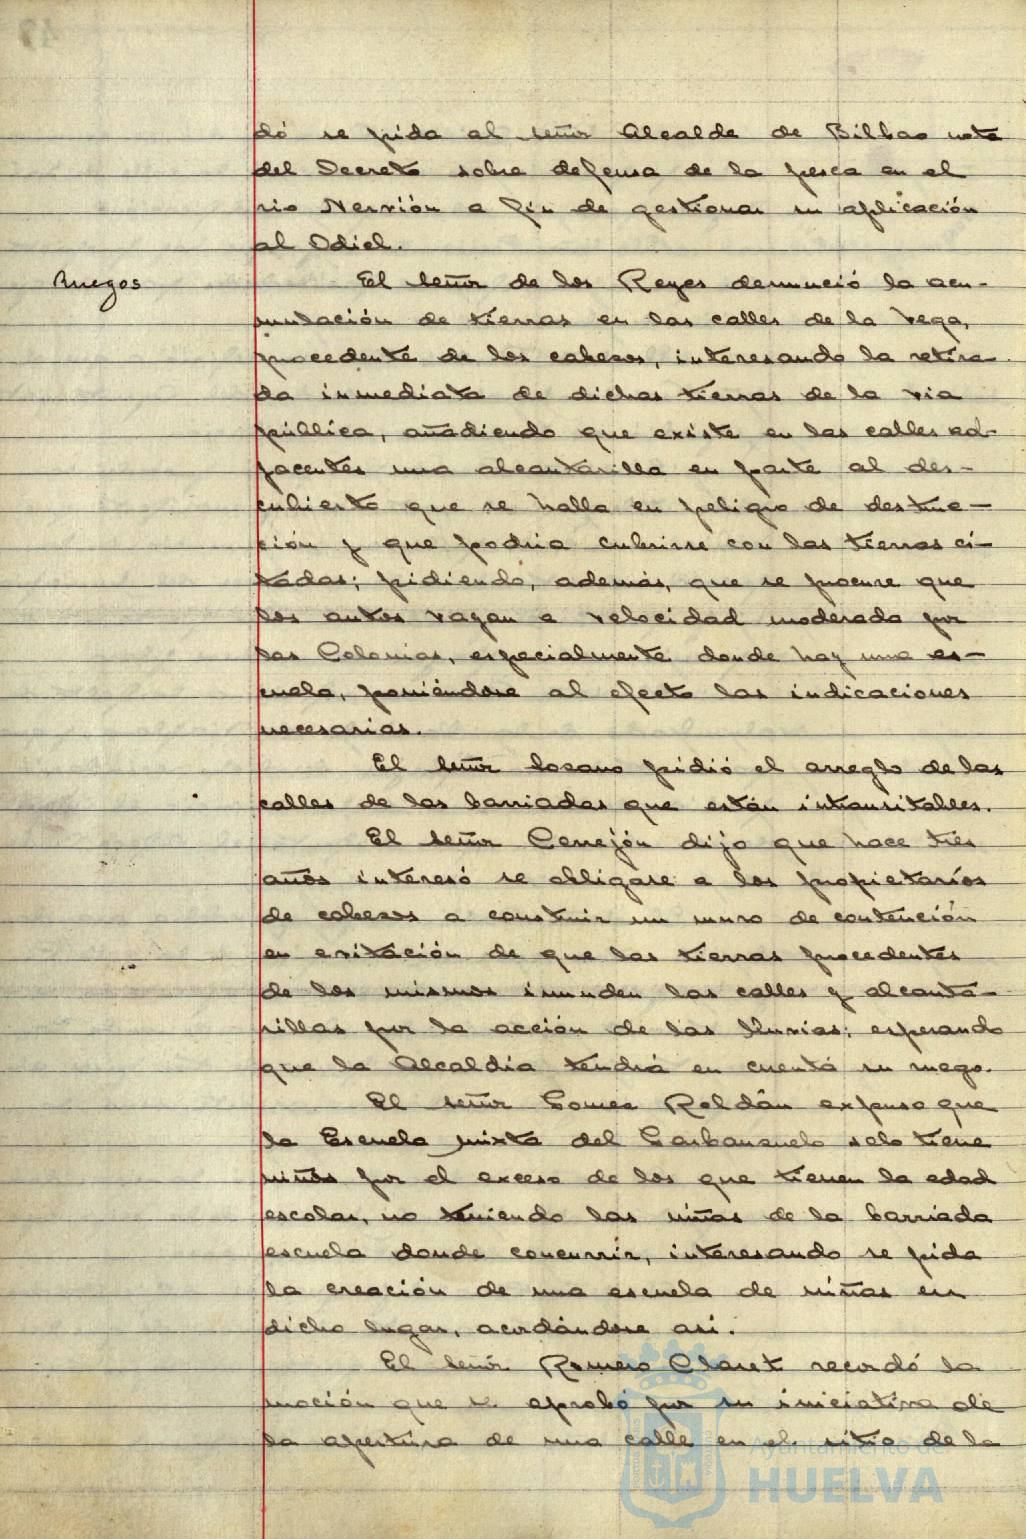 dó se pida al señor Alcalde de Bilbao nota
del Decreto sobre defensa de la pesca en el
rio Nervión a fin de gestionar su aplicación
al Odiel.
Ruegos
El señor de los Reyes denunció la acu-
mulación de tierras en las calles de la Vega,
procedente de los cabezos, interesando la retira-
da inmediata de dichas tierras de la via
pública, añadiendo que existe en las calles ad-
yacentes una alcantarilla en parte al des-
cubierto que se halla en peligro de destruc-
ción y que podria cubrirse con las tierras ci-
tadas; pidiendo, además, que se procure que
los autos vayan a velocidad moderada por
las Colonias, especialmente donde hay una es-
cuela, poniéndose al efecto las indicaciones
necesarias.
El señor Lozano pidió el arreglo de las
calles de las barriadas que están intransitables.
El señor Cerrejón dijo que hace tres
años interesó se obligase a los propietarios
de cabezos a construir un muro de contención
en evitación de que las tierras procedentes
de los mismos inunden las calles y alcanta-
rillas por la acción de las lluvias; esperando
que la Alcaldia tendrá en cuenta su ruego.
El señor Gomez Roldán expuso que
la Escuela mixta del Garbanzuelo solo tiene
niños por el exceso de los que tienen la edad
escolar, no teniendo las niñas de la barriada
escuela donde concurrir, interesando se pida
la creación de una escuela de niñas en
dicho lugar, acordándose asi.
El señor Romero Claret recordó la
moción que se aprobó por su iniciativa de
la apertura de una calle en el sitio de la
Ayuntamiento de
HUELVA